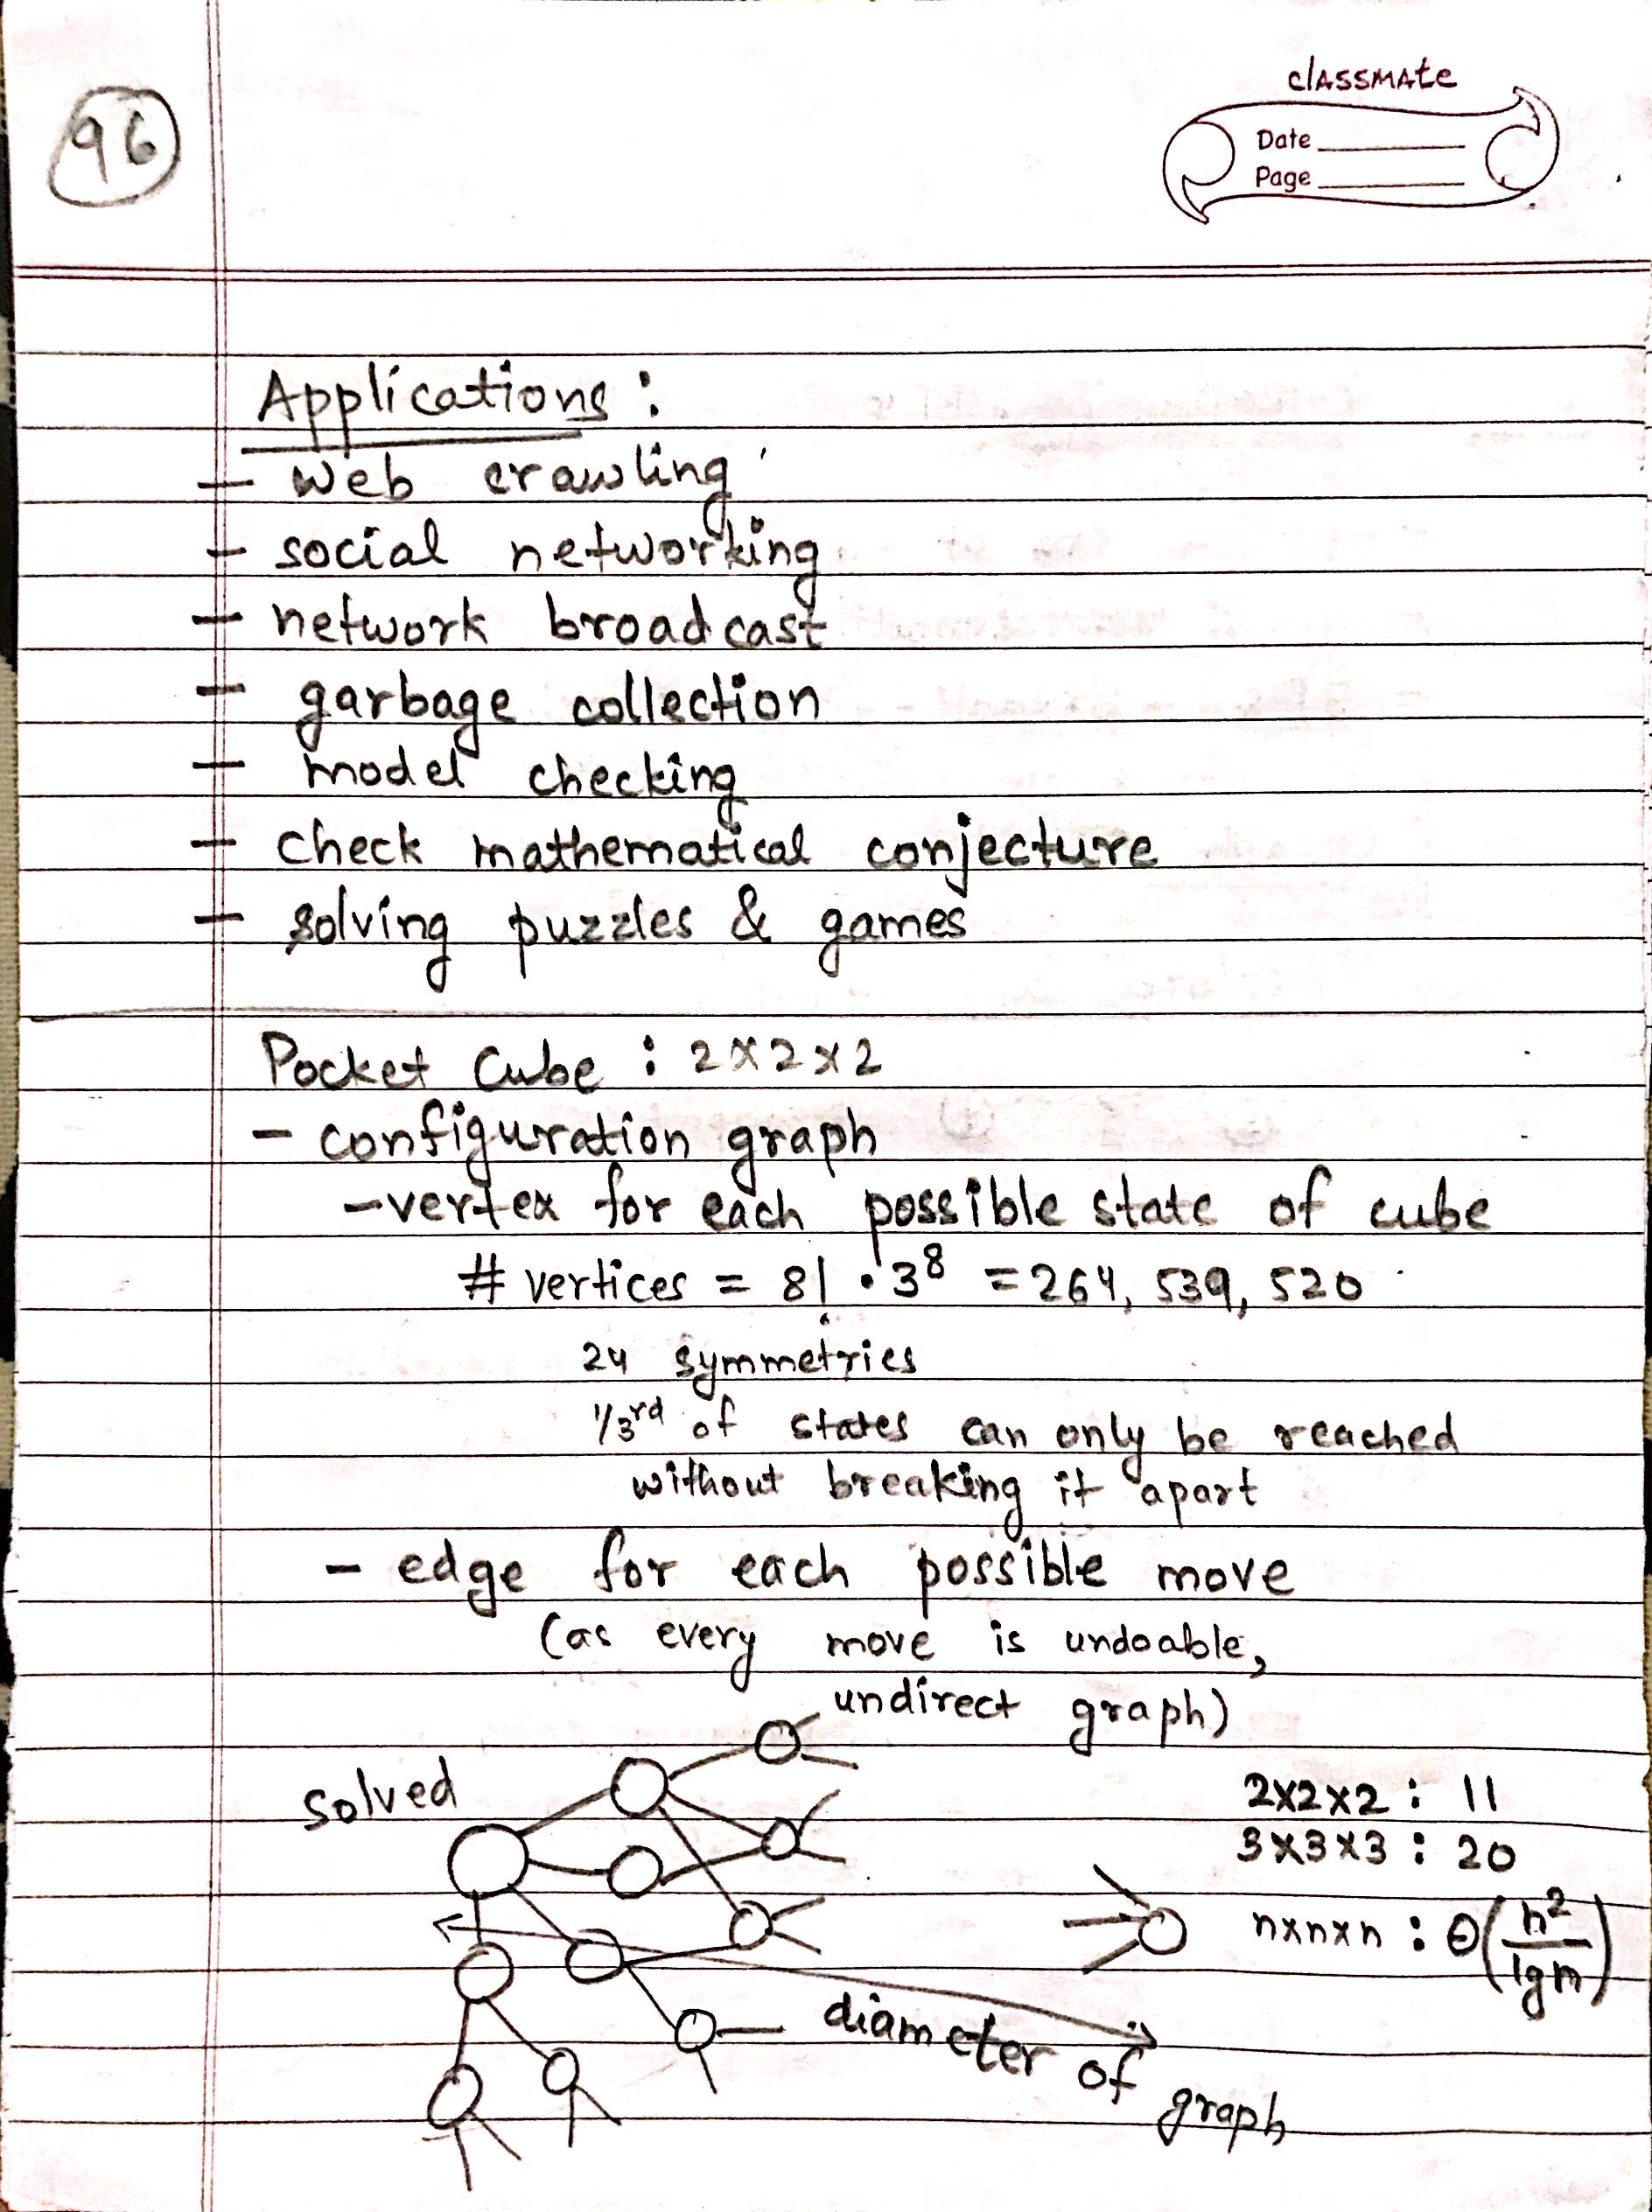 96
classmate
Date
Page
Applications :
- web crawling
- social networking
- network broadcast
- garbage collection
- model checking
- check mathematical conjecture
- solving puzzles & games
Pocket Cube : 2×2×2
- configuration graph
- vertex for each possible state of cube
# vertices = 8! · 3⁸ = 264, 539, 520
24 symmetries
1/3rd of states can only be reached
without breaking it apart
- edge for each possible move
(as every move is undoable,
undirect graph)
solved
2×2×2 : 11
3×3×3 : 20
n×n×n : Θ(n²/lg n)
diameter of graph